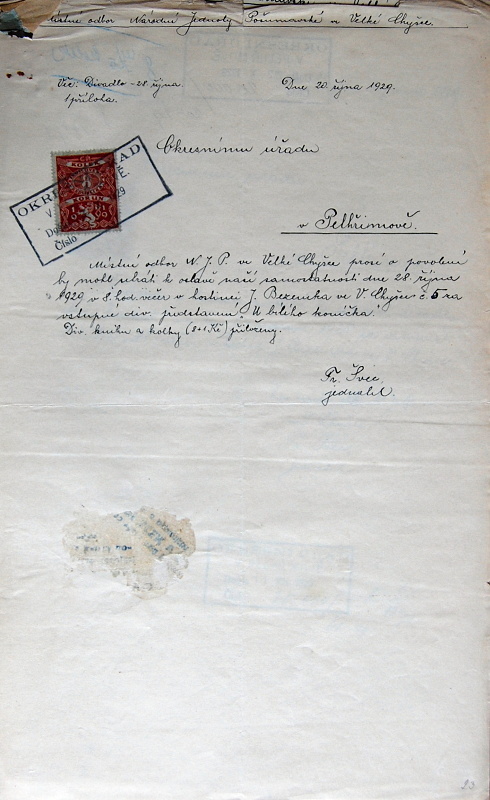 Místní odbor Národní Jednoty Pošumavské ve Velké Chyšce.
Věc: Divadlo - 28. října. Dne 20. října 1929.
1 příloha.
Okresnímu úřadu
OKRE ÚŘAD
KOLEK
5
KORUN
Číslo
v Pelhřimově.
Místní odbor N. J. P. ve Velké Chyšce prosí o povolení
by mohl sehráti k oslavě naší samostatnosti dne 28. října
1929 v 8. hod. večer v hostinci J. Bezemka ve V. Chyšce č. 5 za
vstupné div. představení "U bílého koníčka".
Div. knihu a kolky (8+1 Kč) přiloženy.
Fr. Švec,
jednatel.
23